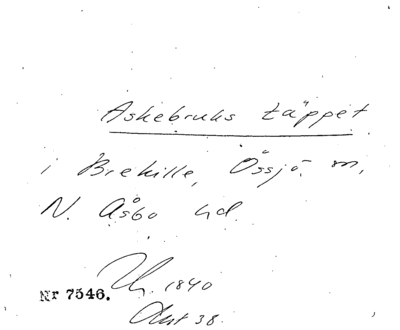 Askebruks täppet
i Brekille, Össjö. m,
N. Åsbo hd.
1840
Nr 7546.
38.